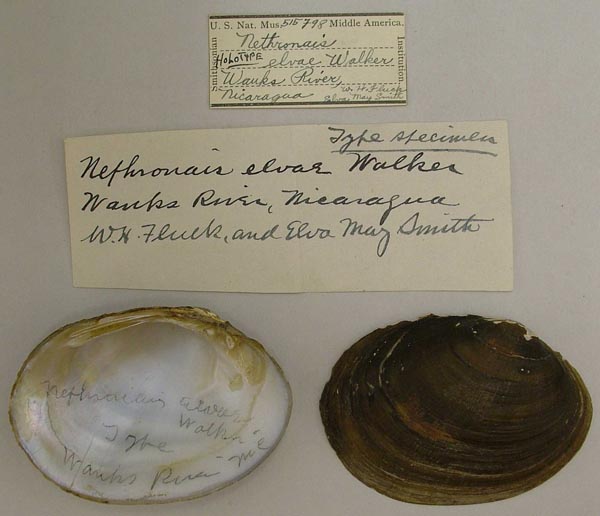 U. S. Nat. Mus. 515798 Middle America.
Smithsonian
Institution
Nethronais
HOLOTYPE elvae Walker
Wanks River
Nicaragua
W. H. Fluck
Elva May Smith
Type specimen
Nephronais elvae Walker
Wanks River, Nicaragua
W. H. Fluck, and Elva May Smith
Nephronaias elvae
Walker
Type
Wanks River Nic